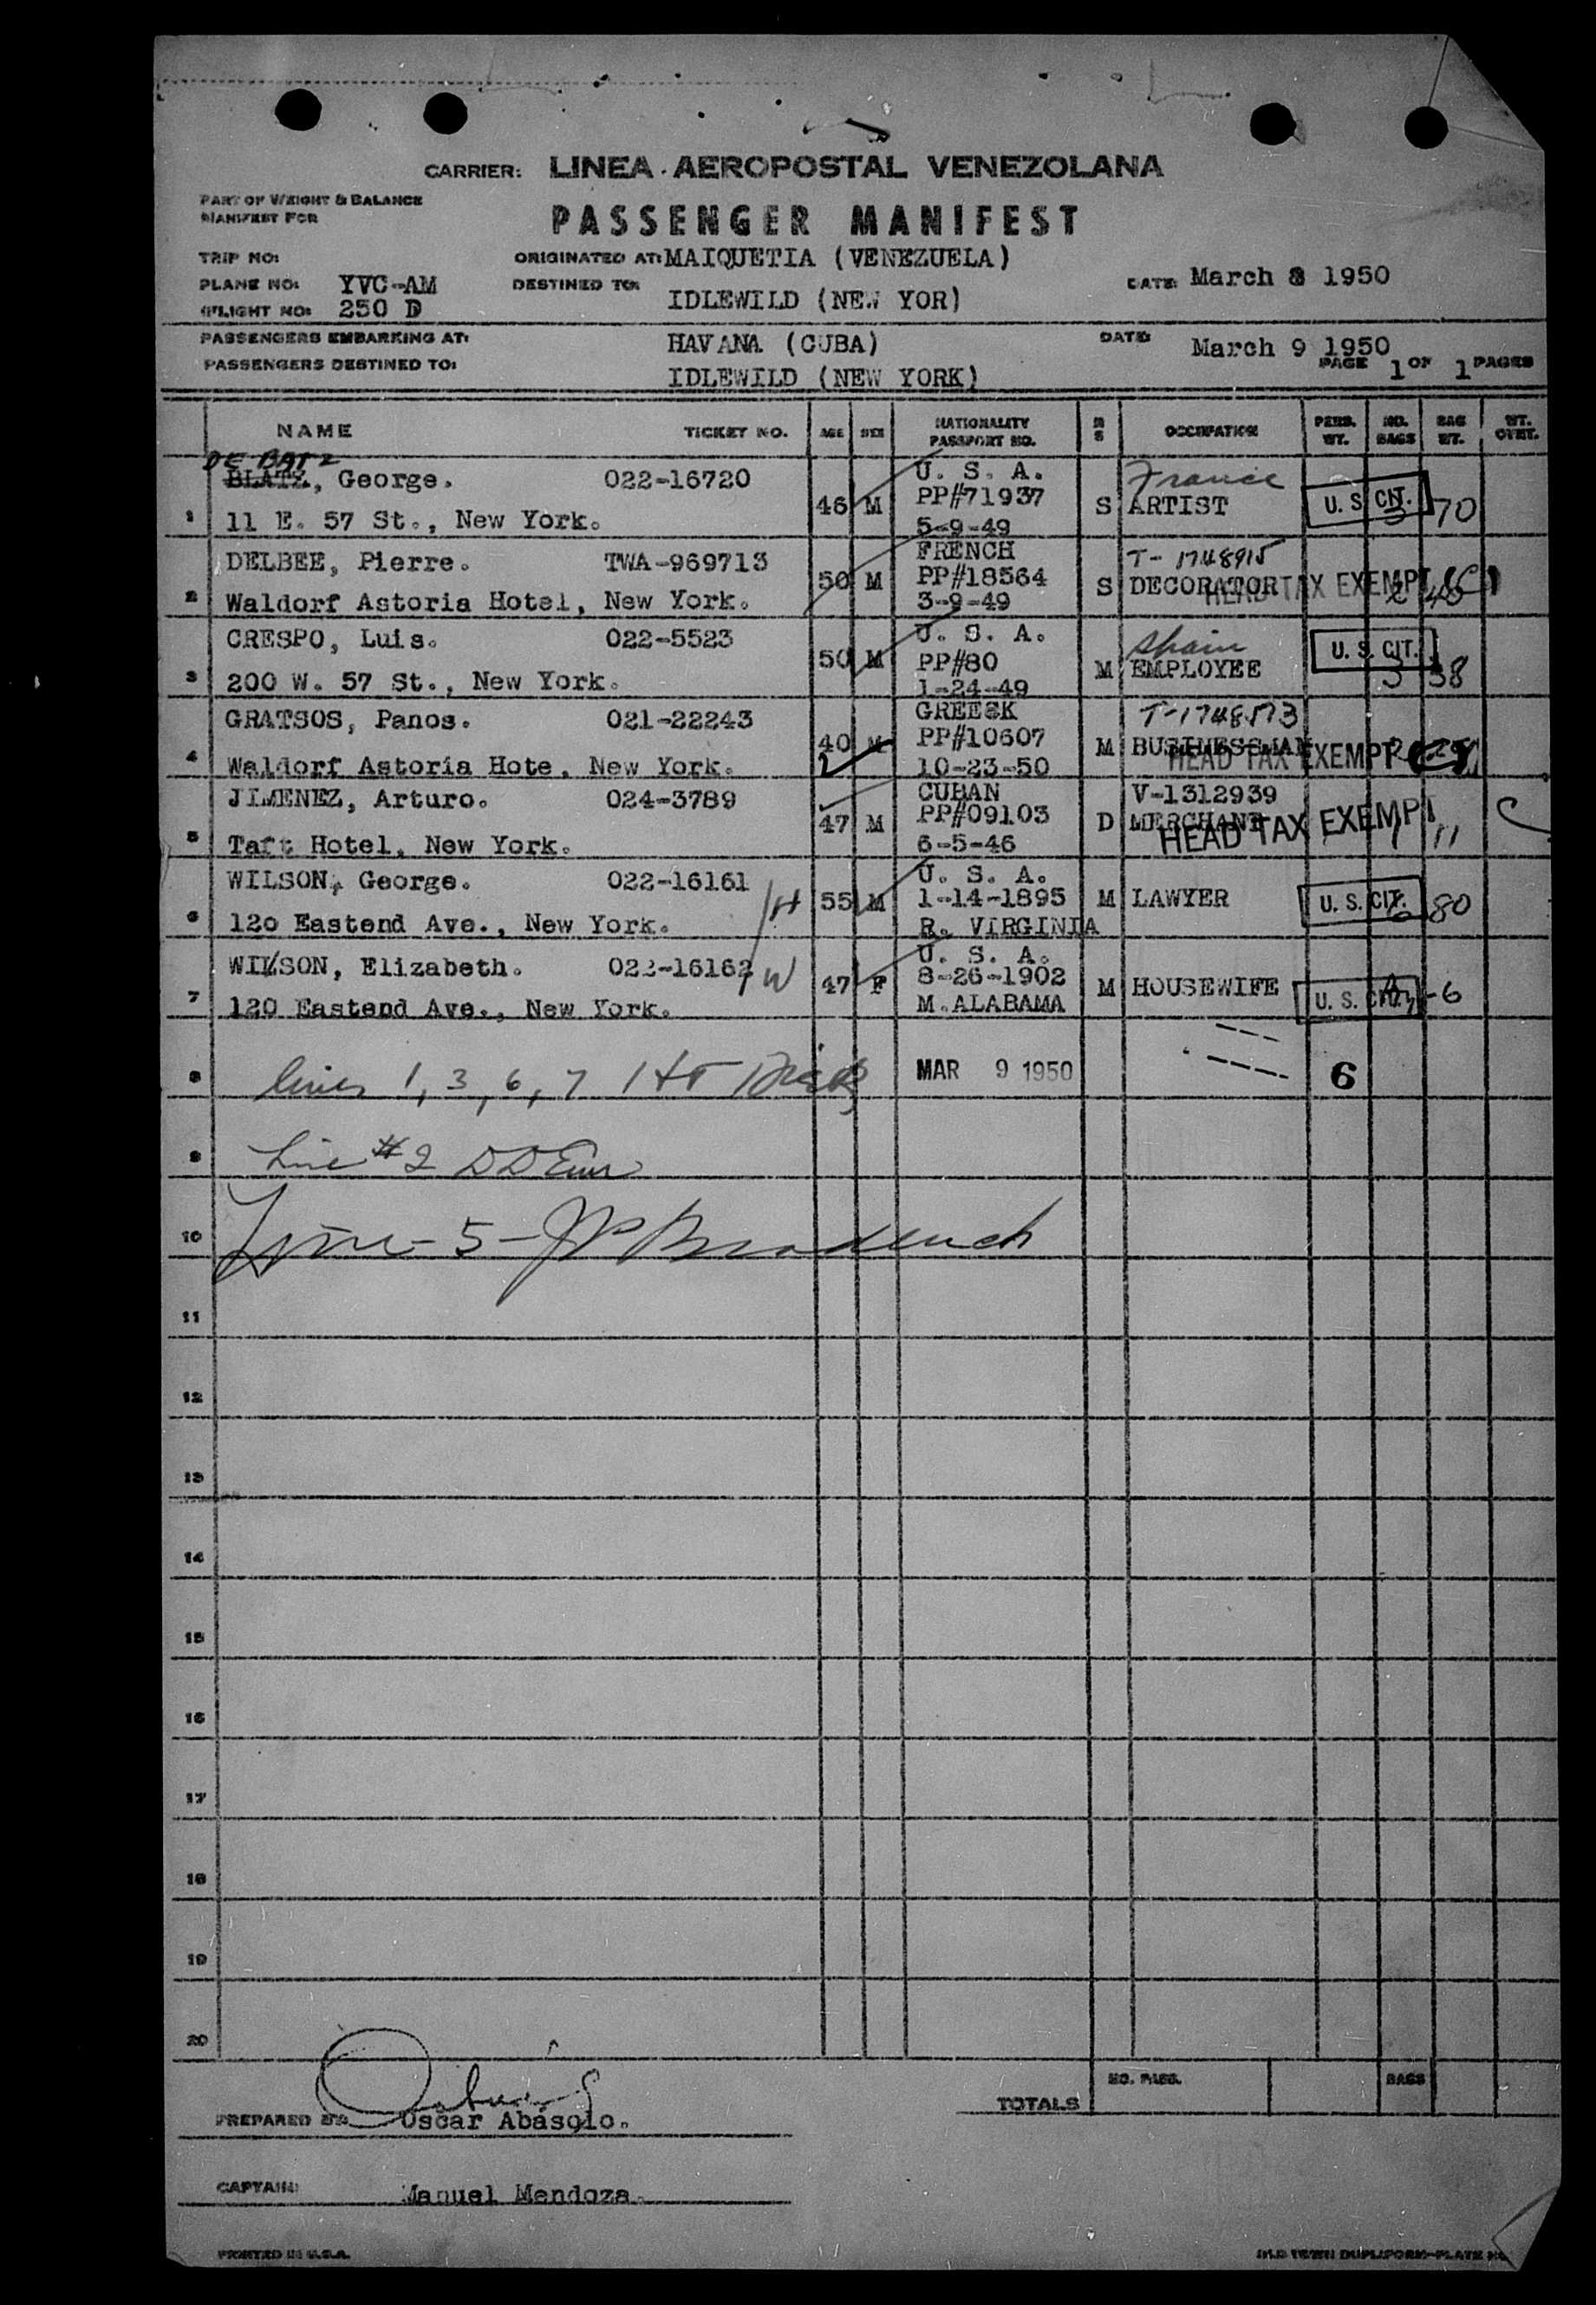 CARRIER: LINEA AEROPOSTAL VENEZOLANA
PART OF WEIGHT & BALANCE
MANIFEST FOR
PASSENGER MANIFEST
TRIP NO:
ORIGINATED AT: MAIQUETIA (VENEZUELA)
PLANE NO: YVC-AM
DESTINED TO: IDLEWILD (NEW YOR)
DATE: March 8 1950
FLIGHT NO: 250 D
PASSENGERS EMBARKING AT: HAVANA (CUBA)
DATE March 9 1950
PASSENGERS DESTINED TO: IDLEWILD (NEW YORK)
PAGE 1 OF 1 PAGES
NAME TICKET NO. AGE SEX NATIONALITY PASSPORT NO. M S OCCUPATION PERS. WT. NO. BAGS BAG WT. WT. OVRT.
DE BATZ
BLATZ, George. 022-16720 U. S. A. France
1 46 M PP#71937 S ARTIST U. S. CIT. 3 70
11 E. 57 St., New York. 5-9-49
DELBEE, Pierre. TWA-969713 FRENCH T-1748915
2 50 M PP#18564 S DECORATOR HEAD TAX EXEMPT
Waldorf Astoria Hotel, New York. 3-9-49
CRESPO, Luis. 022-5523 U. S. A. Spain
3 50 M PP#80 M EMPLOYEE U. S. CIT. 3 38
200 W. 57 St., New York. 1-24-49
GRATSOS, Panos. 021-22243 GREESK T-1748573
4 40 M PP#10607 M BUSINESSMAN HEAD TAX EXEMPT
Waldorf Astoria Hote, New York. 10-23-50
JIMENEZ, Arturo. 024-3789 CUBAN V-1312939
5 47 M PP#09103 D MERCHANT HEAD TAX EXEMPT 1 11
Taft Hotel, New York. 6-5-46
WILSON, George. 022-16161 U. S. A.
6 H 55 M 1-14-1895 M LAWYER U. S. CIT. 80
120 Eastend Ave., New York. R. VIRGINIA
WILSON, Elizabeth. 022-16162 U. S. A.
7 W 47 F 8-26-1902 M HOUSEWIFE U. S. CIT.
120 Eastend Ave., New York. M. ALABAMA
8 lines 1, 3, 6, 7 MAR 9 1950 6
9 Line #2
10 Line - 5 -
11
12
13
14
15
16
17
18
19
20
NO. PASS. BAGS
TOTALS
PREPARED BY: Oscar Abásolo.
CAPTAIN: Manuel Mendoza.
PRINTED IN U.S.A.
OLD TOWN DUPLIFORM-PLATE